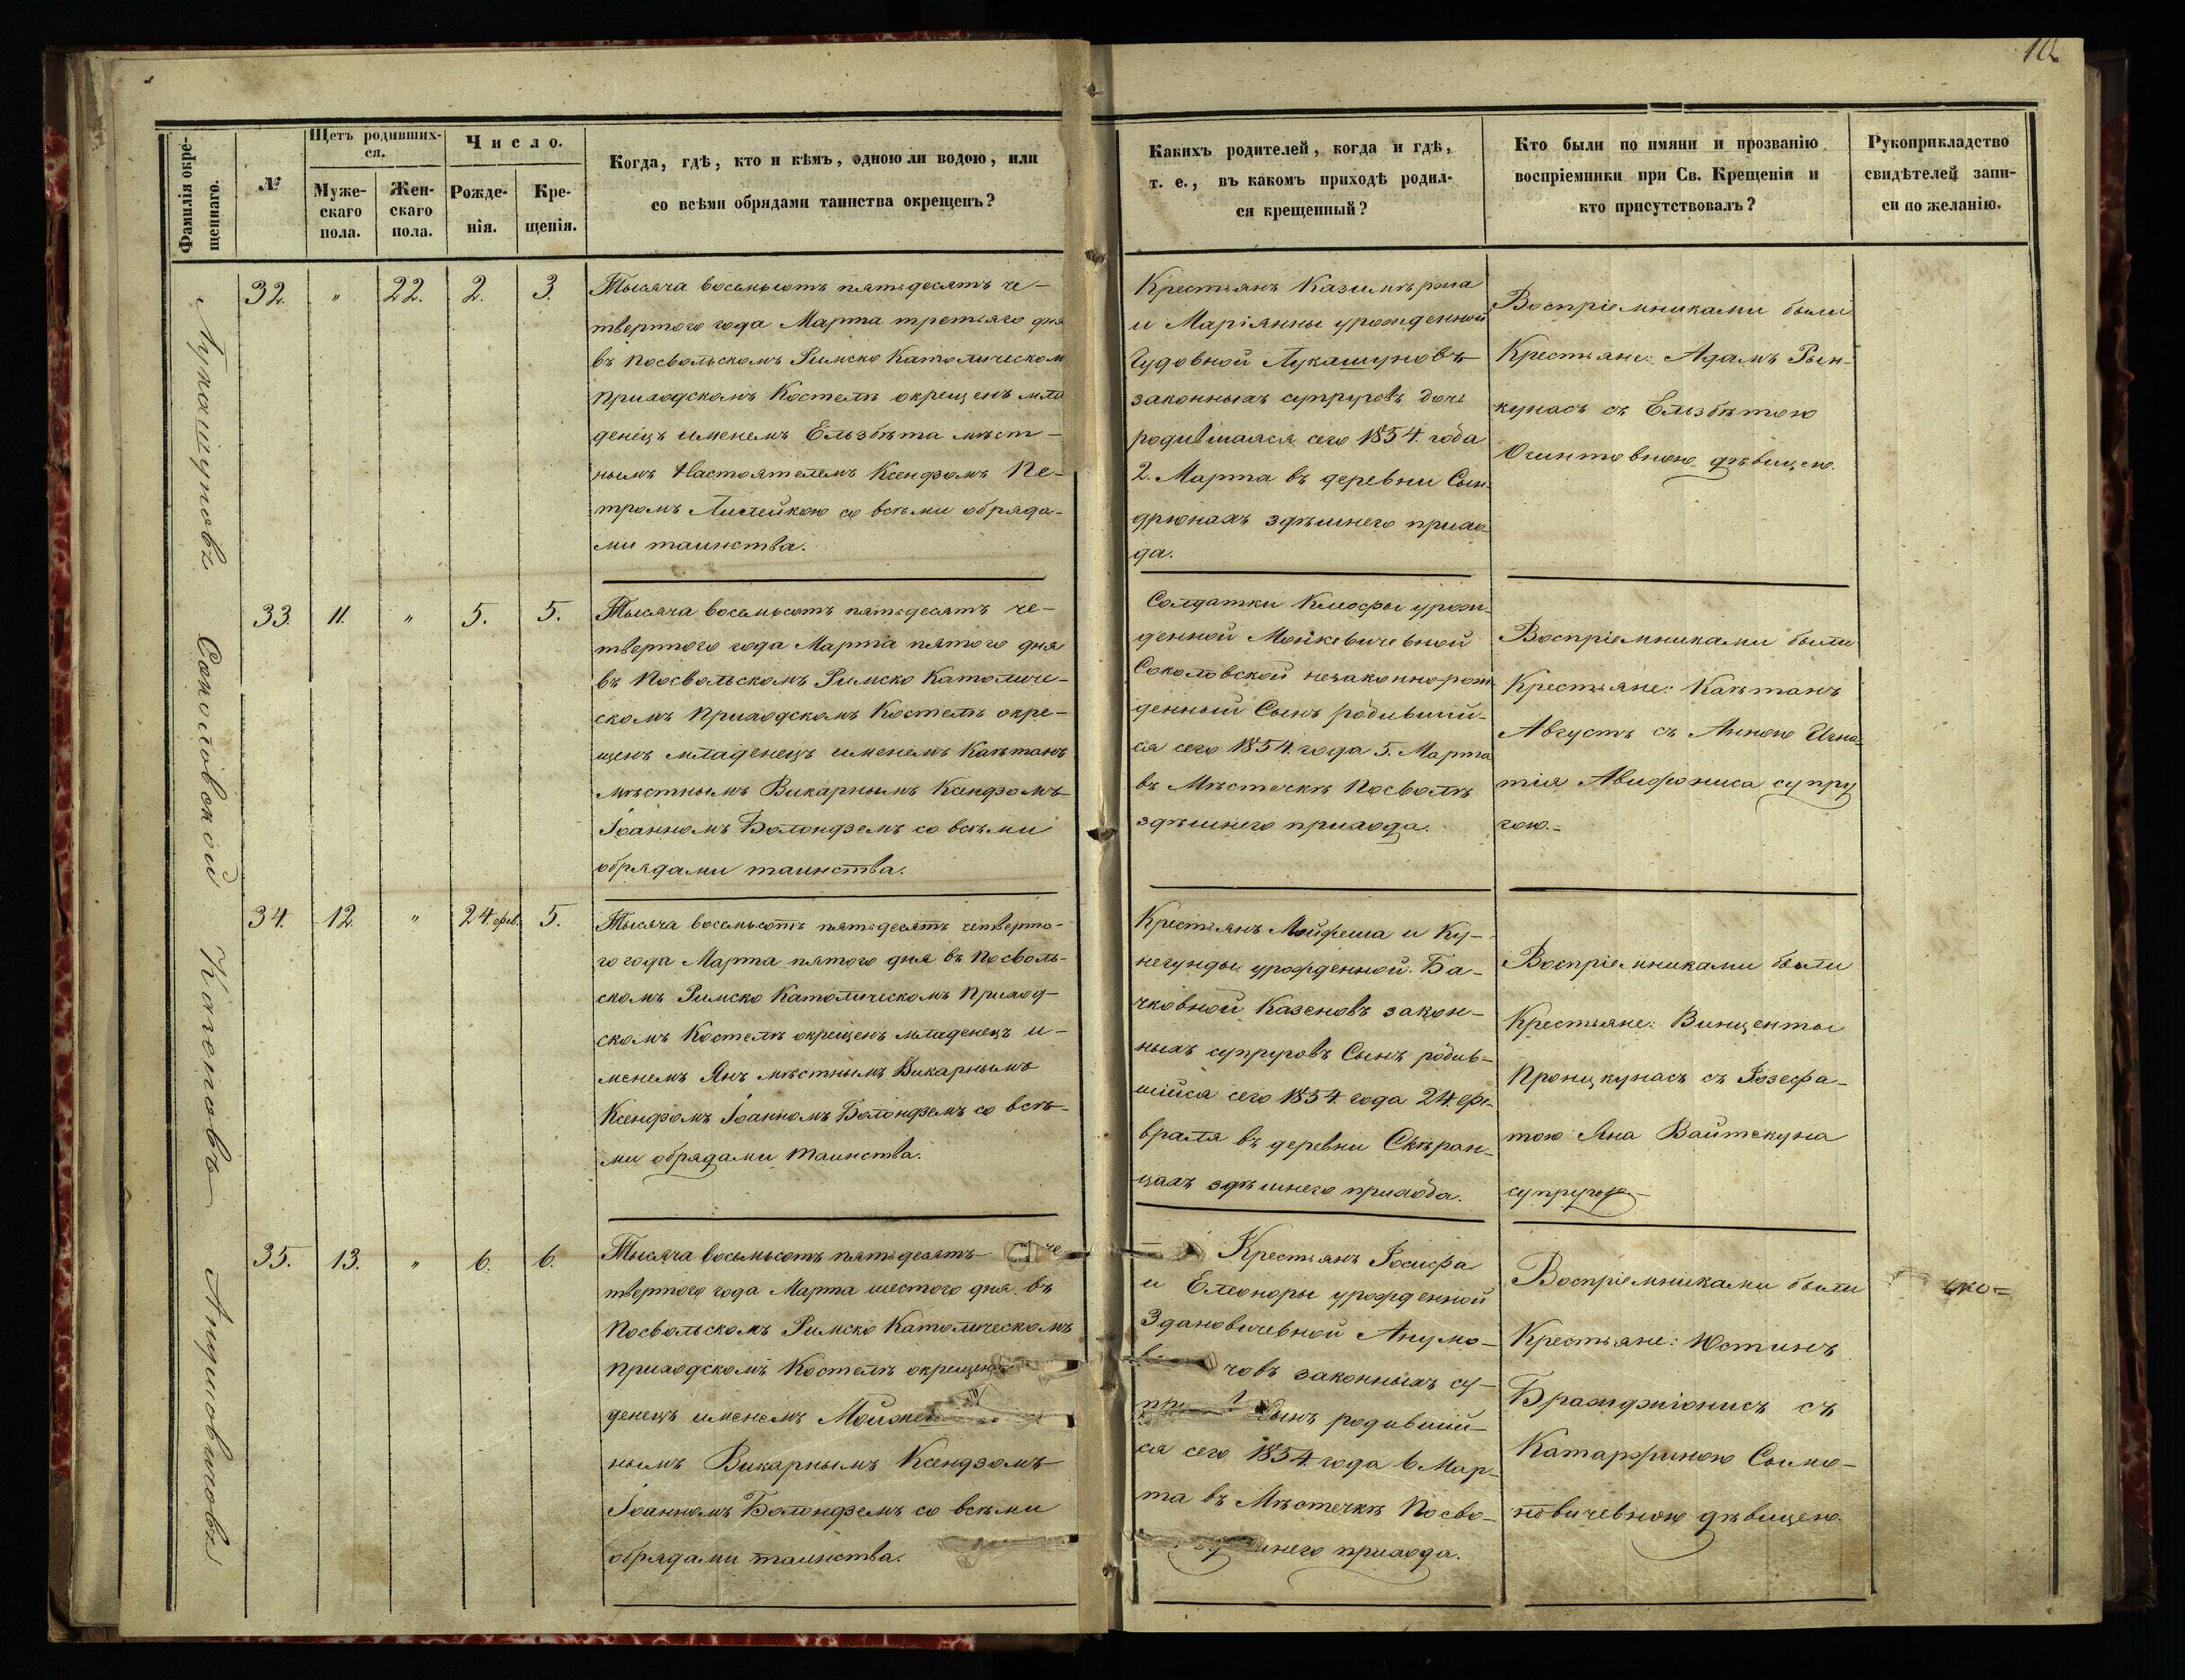 10
Фамилія окре-
щеннаго.
№
Щетъ родивших-
ся.
Муже-
скаго
пола.
Жен-
скаго
пола.
Число.
Рожде-
нія.
Кре-
щенія.
Когда, гдѣ, кто и кѣмъ, одною ли водою, или
со всѣми обрядами таинства окрещенъ?
Какихъ родителей, когда и гдѣ,
т. е., въ какомъ приходѣ родил-
ся крещенный?
Кто были по имяни и прозванію
воспріемники при Св. Крещеніи и
кто присутствовалъ?
Рукоприкладство
свидѣтелей запи-
си по желанію.
Лукашуновъ
32. " 22. 2. 3.
Тысяча восемьсотъ пятьдесятъ че-
твертого года Марта третьяго дня
въ Посвольскомъ Римско Католическом
Приходскомъ Костелѣ окрещенъ мла
денецъ именемъ Ельзбѣта мѣст-
нымъ Настоятелемъ Ксендзомъ Пе-
тромъ со всѣми обряда-
ми таинства.
Крестьянъ Казимѣра
и Маріянны урожденной
Гудовной Лукашуновъ
законныхъ супруговъ дочь
родившаяся сего 1854. года
2. Марта въ деревни Сын-
дрюнахъ здѣшнего прихо
да.
Воспріемниками были
Крестьяне: Адамъ Рын-
кунасъ съ Ельзбѣтою
Огинтовною дѣвицею.
Соколовской
33. 11. " 5. 5.
Тысяча восемьсотъ пятьдесятъ че-
твертого года Марта пятого дня
въ Посвольскомъ Римско Католиче-
скомъ Приходскомъ Костелѣ окре-
щенъ младенецъ именемъ Каѣтанъ
мѣстнымъ Викарнымъ Ксендзомъ
Іоанномъ Болондземъ со всѣми
обрядами таинства.
Солдатки Клеофы урож-
денной Монкевичевной
Соколовской незаконнорож-
денный Сынъ родившій-
ся сего 1854. года 5. Марта
въ Мѣстечкѣ Посволѣ
здѣшнего прихода.
Воспріемниками были
Крестьяне: Каѣтанъ
Августъ съ Анною Игна-
тія супру
гою.-
Казеновъ
34. 12. " 24. фев. 5.
Тысяча восемьсотъ пятьдесятъ четверто-
го года Марта пятого дня въ Посволь-
скомъ Римско Католическомъ Приход-
скомъ Костелѣ окрещенъ младенецъ и-
менемъ Янъ мѣстнымъ Викарнымъ
Ксендзомъ Іоанномъ Болондземъ со всѣ-
ми обрядами таинства.
Крестьянъ Мойжеша и Ку-
негунды урожденной Ба-
чковной Казеновъ закон-
ныхъ супруговъ Сынъ родив-
шійся сего 1854. года 24. фе-
враля въ деревни Скѣран-
цахъ здѣшнего прихода.
Воспріемниками были
Крестьяне: Винценты
Пронцкунасъ съ Іозефа-
тою Яна Вайткуна
супругою-
35. 13. " 6. 6.
Тысяча восемьсотъ пятьдесятъ че-
твертого года Марта шестого дня въ
Посвольскомъ Римско Католическомъ
приходскомъ Костелѣ окрещенъ
денецъ именемъ
нымъ Викарнымъ Ксендзомъ
Іоанномъ Болондземъ со всѣми
обрядами таинства.
Крестьянъ Іосифа
и Елеоноры урожденной
Здановичевной
човъ законныхъ су-
Сынъ родившій-
ся сего 1854. года 6 Мар-
та въ Мѣстечкѣ Посво-
шнего прихода.
Воспріемниками были
Крестьяне: Юстинъ
Браждżіонисъ съ
Катаржиною Сымо-
новичевною дѣвицею.